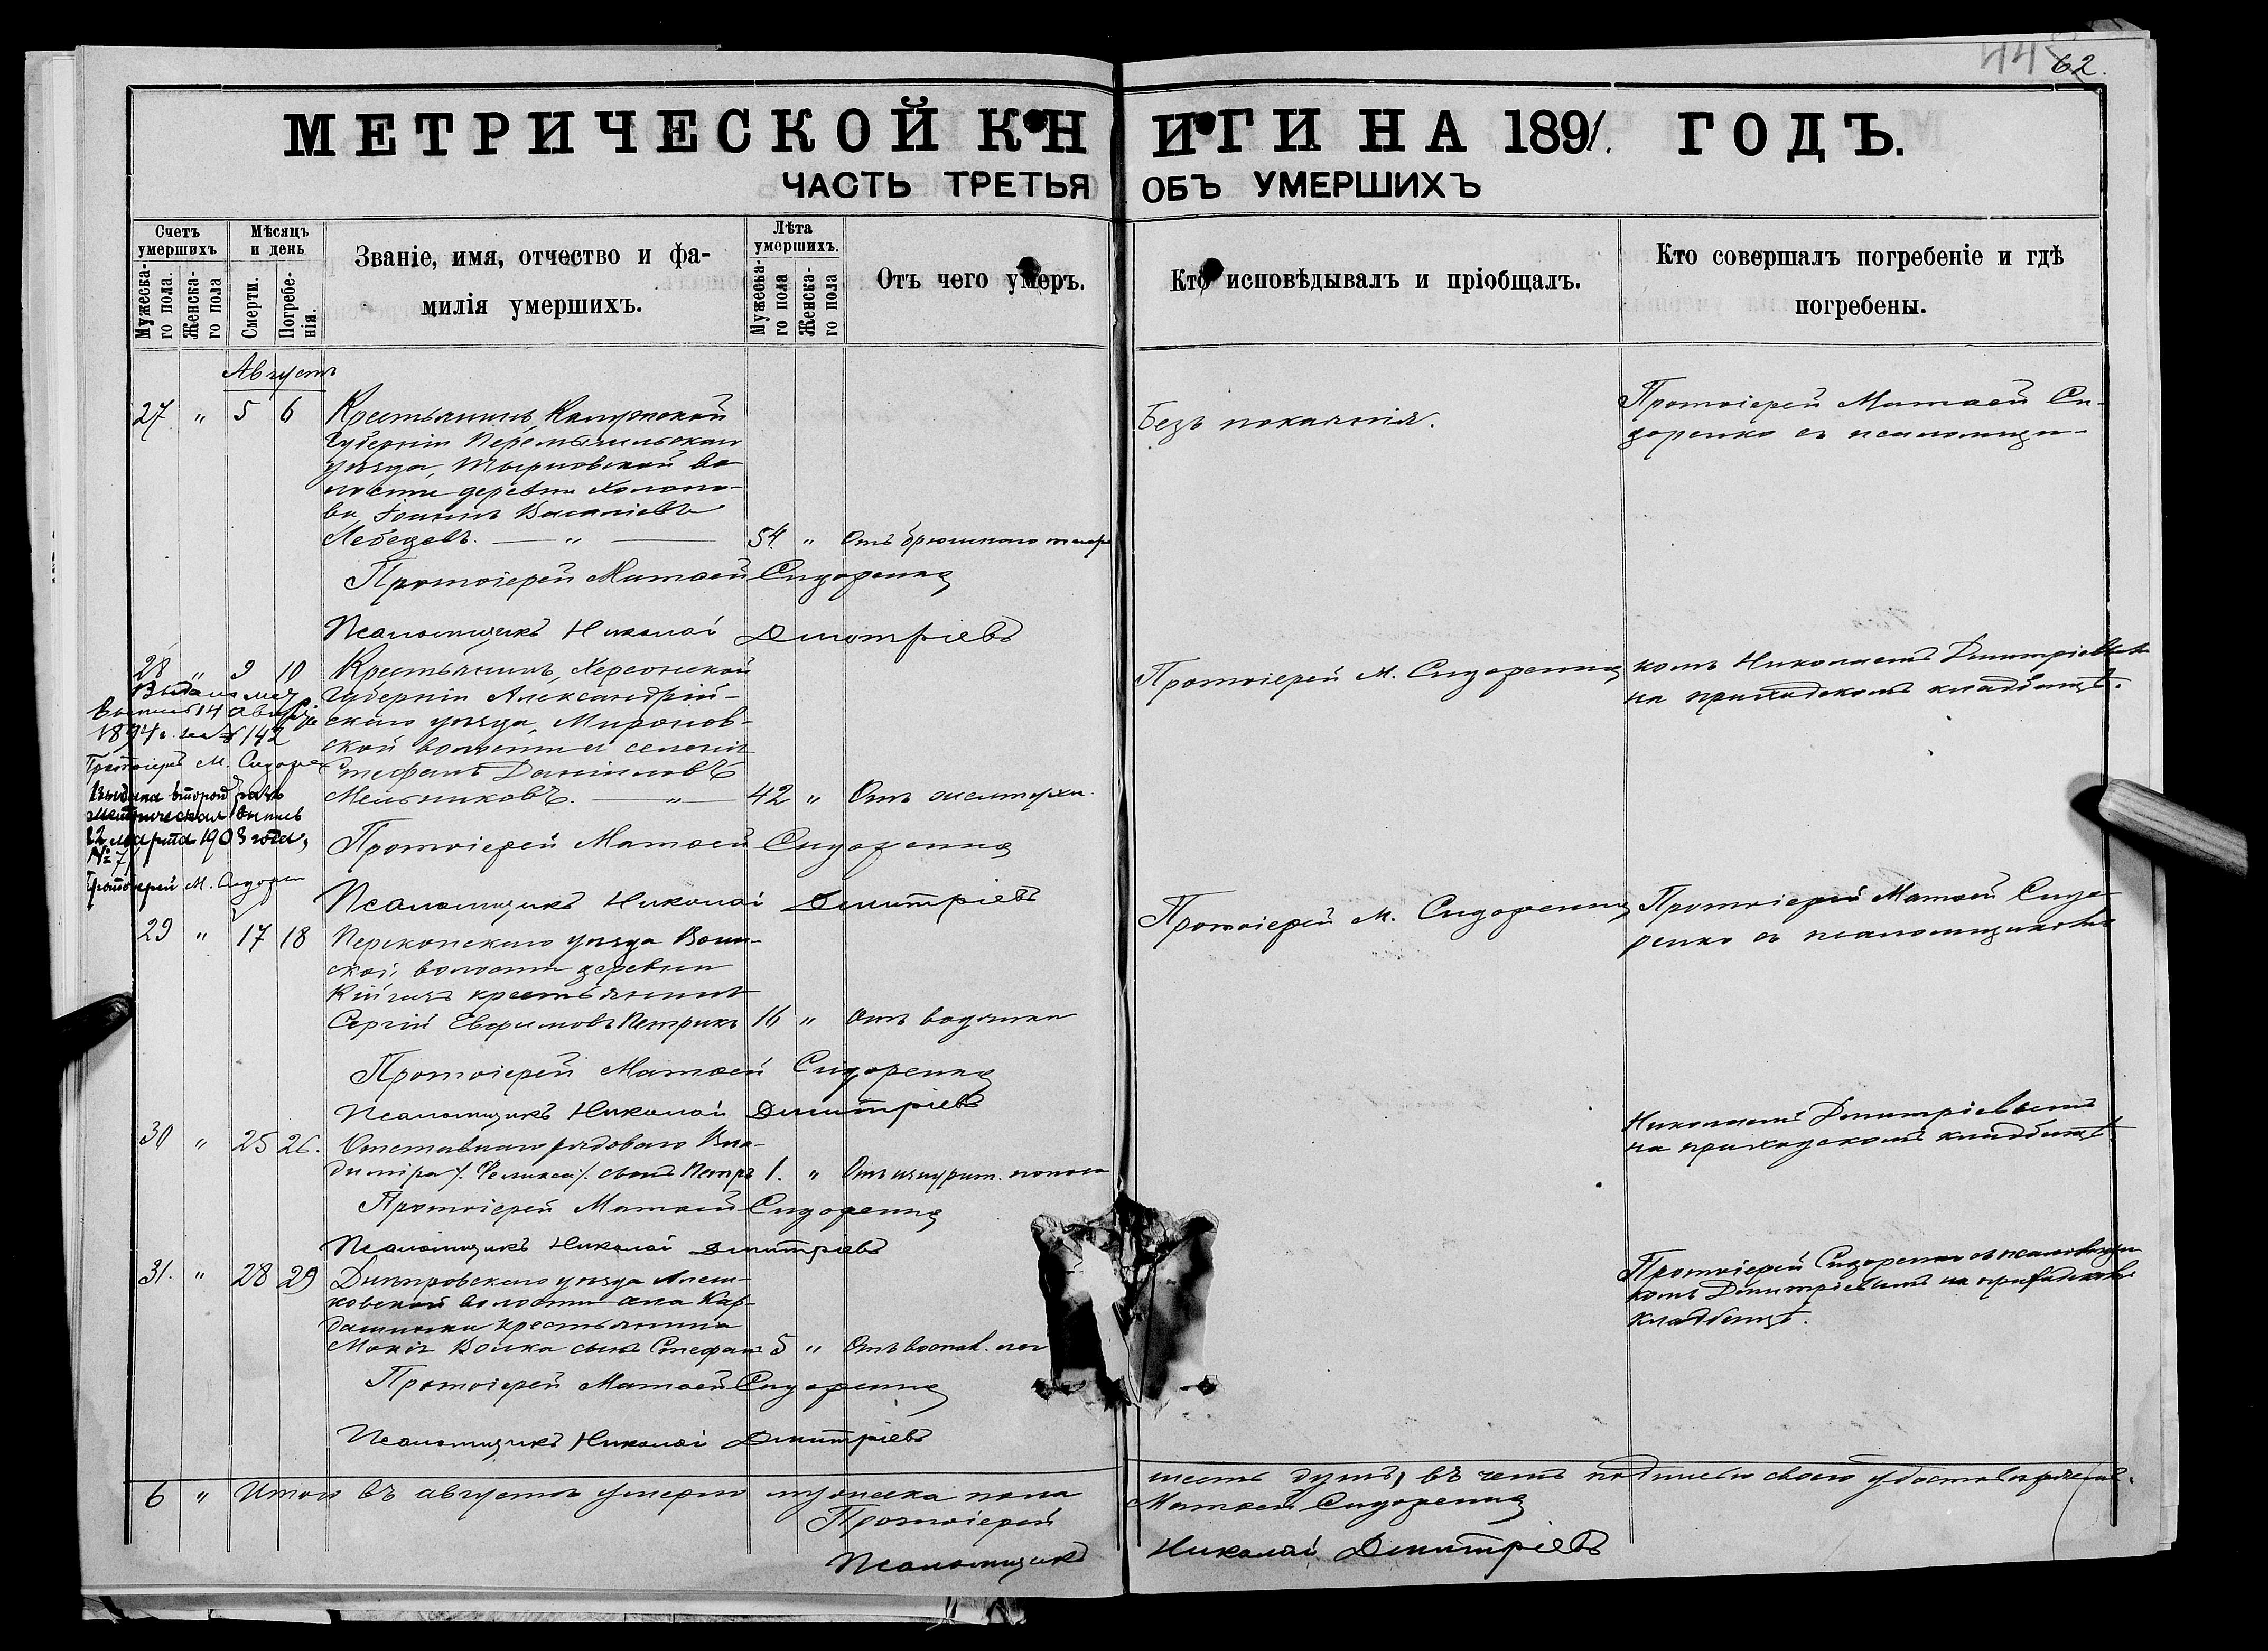 62.
МЕТРИЧЕСКОЙ КНИГИ НА 1891. ГОДЪ.
ЧАСТЬ ТРЕТЬЯ ОБЪ УМЕРШИХЪ
Счетъ умершихъ
Мужеска-го пола.
Женска-го пола
Мѣсяцъ и день
Смерти.
Погребе-нія.
Званіе, имя, отчество и фа-
милія умершихъ.
Лѣта умершихъ.
Мужеска-го пола
Женска-го пола
Отъ чего умеръ.
Кто исповѣдывалъ и пріобщалъ.
Кто совершалъ погребеніе и гдѣ
погребены.
Августъ
27. " 5 6 Крестьянинъ, Калужской
губерніи Перемышльскаго
уѣзда, во-
лости деревни Холопо-
ва, Іоаннъ Василіевъ
Лебедевъ. — " — 54. " Отъ брюшнаго тифа
Безъ покаянія.
Протоіерей Матѳей Си-
доренко съ псаломщи-
Протоіерей Матѳей Сидоренко
Псаломщикъ Николай Дмитріевъ
28 " 9 10 Крестьянинъ, Херсонской
губерніи Александрій-
скаго уѣзда, Миролов-
ской волости и селенія
Стефанъ Даніиловъ
Мельниковъ. — " — 42 " Отъ дизентеріи.
Протоіерей М. Сидоренко
комъ Николаемъ Дмитріевымъ
на приходскомъ кладбищѣ.
Выдана мет
выпись 14 августа
189 г. за № 142
Протоіерей М. Сидорен
Выдана второй разъ
метрическая выпись
22 марта 1903 года,
№ 7
Протоіерей М. Сидорен
Протоіерей Матѳей Сидоренко
Псаломщикъ Николай Дмитріевъ
29 " 17 18 Перекопскаго уѣзда Воин-
ской волости деревни
крестьянинъ
Сергій Евфимовъ Петрикъ 16 " Отъ водянки
Протоіерей М. Сидоренко
Протоіерей Матѳей Сидо-
ренко съ псаломщикомъ
Протоіерей Матѳей Сидоренко
Псаломщикъ Николай Дмитріевъ
30 " 25 26. Отставнаго рядоваго Вла-
диміра /: Феликса :/ сынъ Петръ 1. " Отъ изнурит. поноса
Николаемъ Дмитріевымъ
на приходскомъ кладбищѣ
Протоіерей Матѳей Сидоренко
Псаломщикъ Николай Дмитріевъ
31. " 28 29 Днѣпровскаго уѣзда Алеш-
ковской волости села Кар-
дашинки крестьянина
Мокія Волка сынъ Стефанъ 5 " Отъ воспал. лег
Протоіерей Сидоренко съ псаломщи-
комъ Дмитріевымъ на приходскомъ
кладбищѣ.
Протоіерей Матѳей Сидоренко
Псаломщикъ Николай Дмитріевъ
6 " Итого въ августѣ умерло мужеска пола шесть душъ, въ чемъ подписью своею удостовѣряемъ.
Протоіерей Матѳей Сидоренко
Псаломщикъ Николай Дмитріевъ